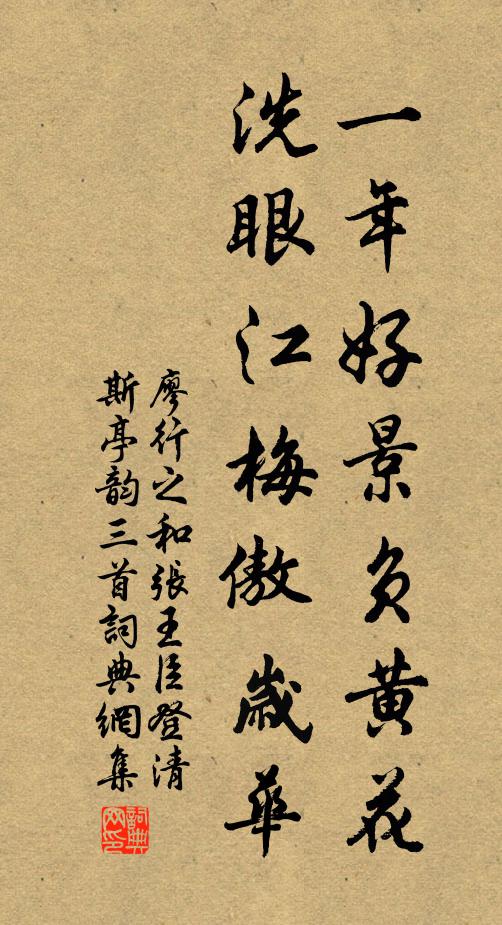 一年好景负黄花
洗眼江梅傲歳華
廖行之和張王臣登清
斯亭韵三首詞典網集
詞典网印